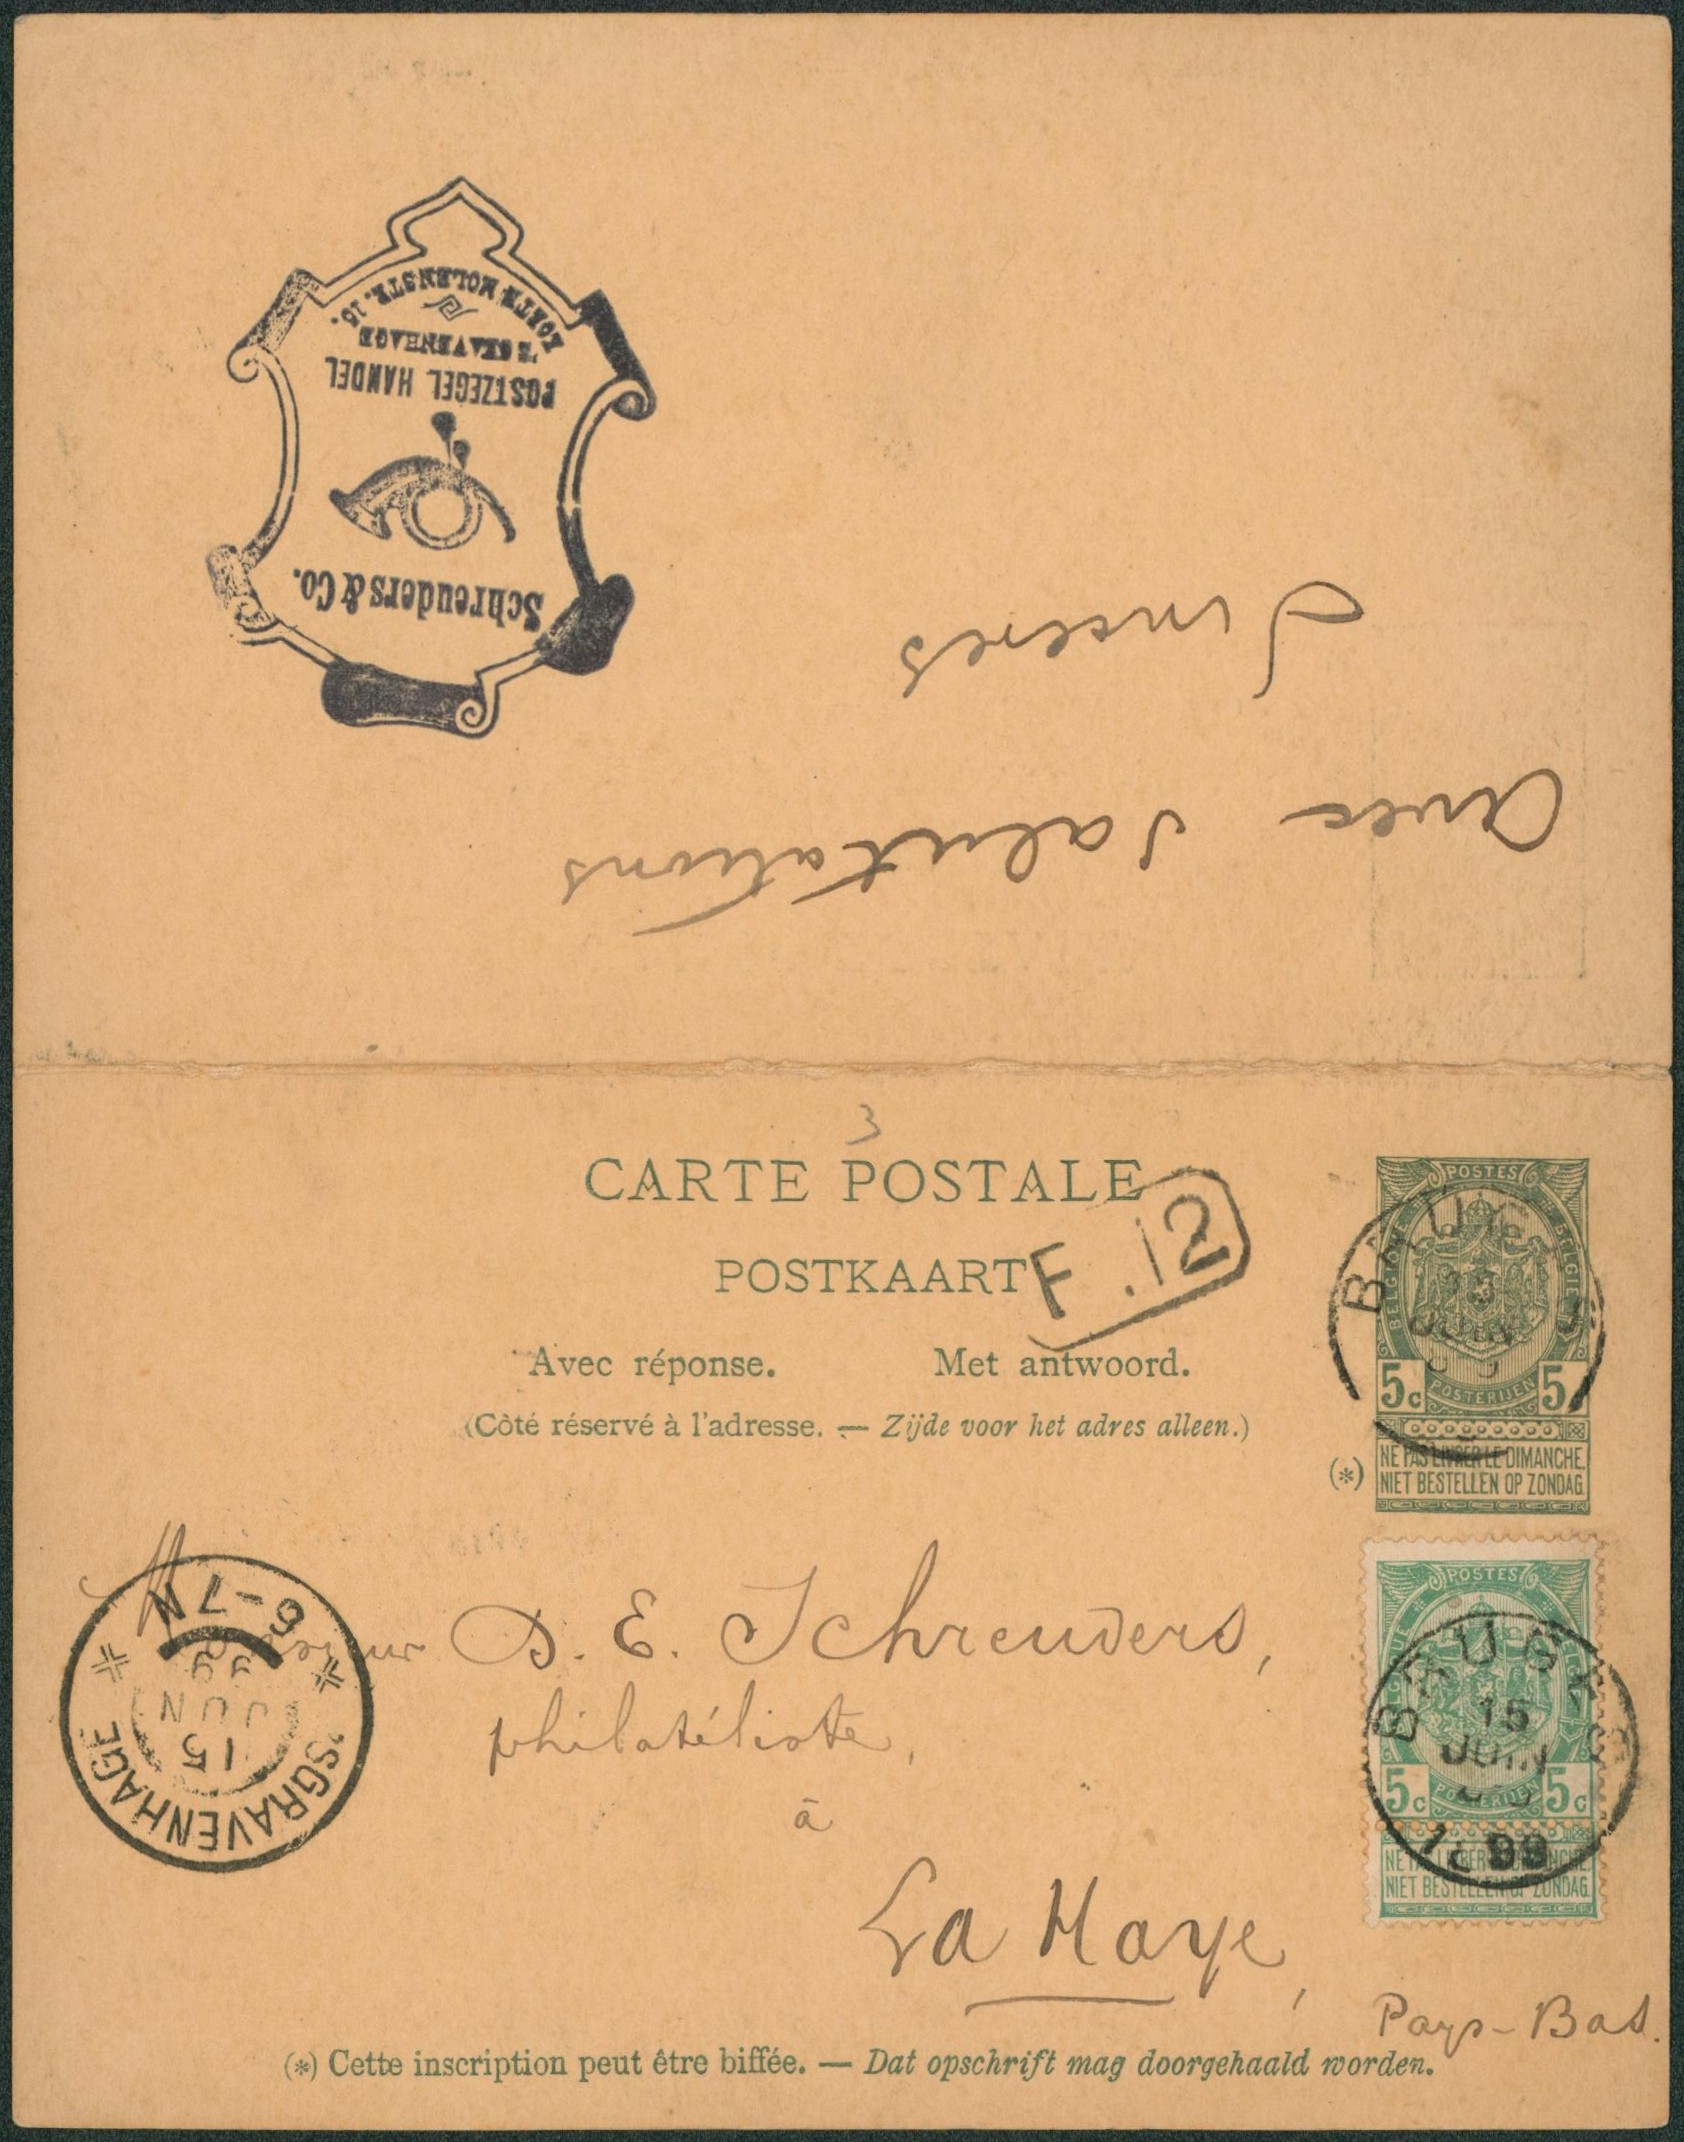 Schreuders & Co.
POSTZEGEL HANDEL
'S GRAVENHAGE
KORTE MOLENSTR. 15.
avec salutations
sincères
3
CARTE POSTALE
POSTKAART
F. 12
Avec réponse. Met antwoord.
(Côté réservé à l'adresse. — Zijde voor het adres alleen.)
POSTES
BELGIQUE BELGIË
5c 5c
POSTERIJEN
(*) NE PAS LIVRER LE DIMANCHE.
NIET BESTELLEN OP ZONDAG.
BRUGES
JUIN
POSTES
BELGIQUE BELGIË
5c 5c
POSTERIJEN
NE PAS LIVRER LE DIMANCHE
NIET BESTELLEN OP ZONDAG.
BRUGES
15
JUIN
1899
'SGRAVENHAGE
15
JUN
99
6-7N
Monsieur D. E. Schreuders,
philatéliste,
à
La Haye,
Pays-Bas.
(*) Cette inscription peut être biffée. — Dat opschrift mag doorgehaald worden.